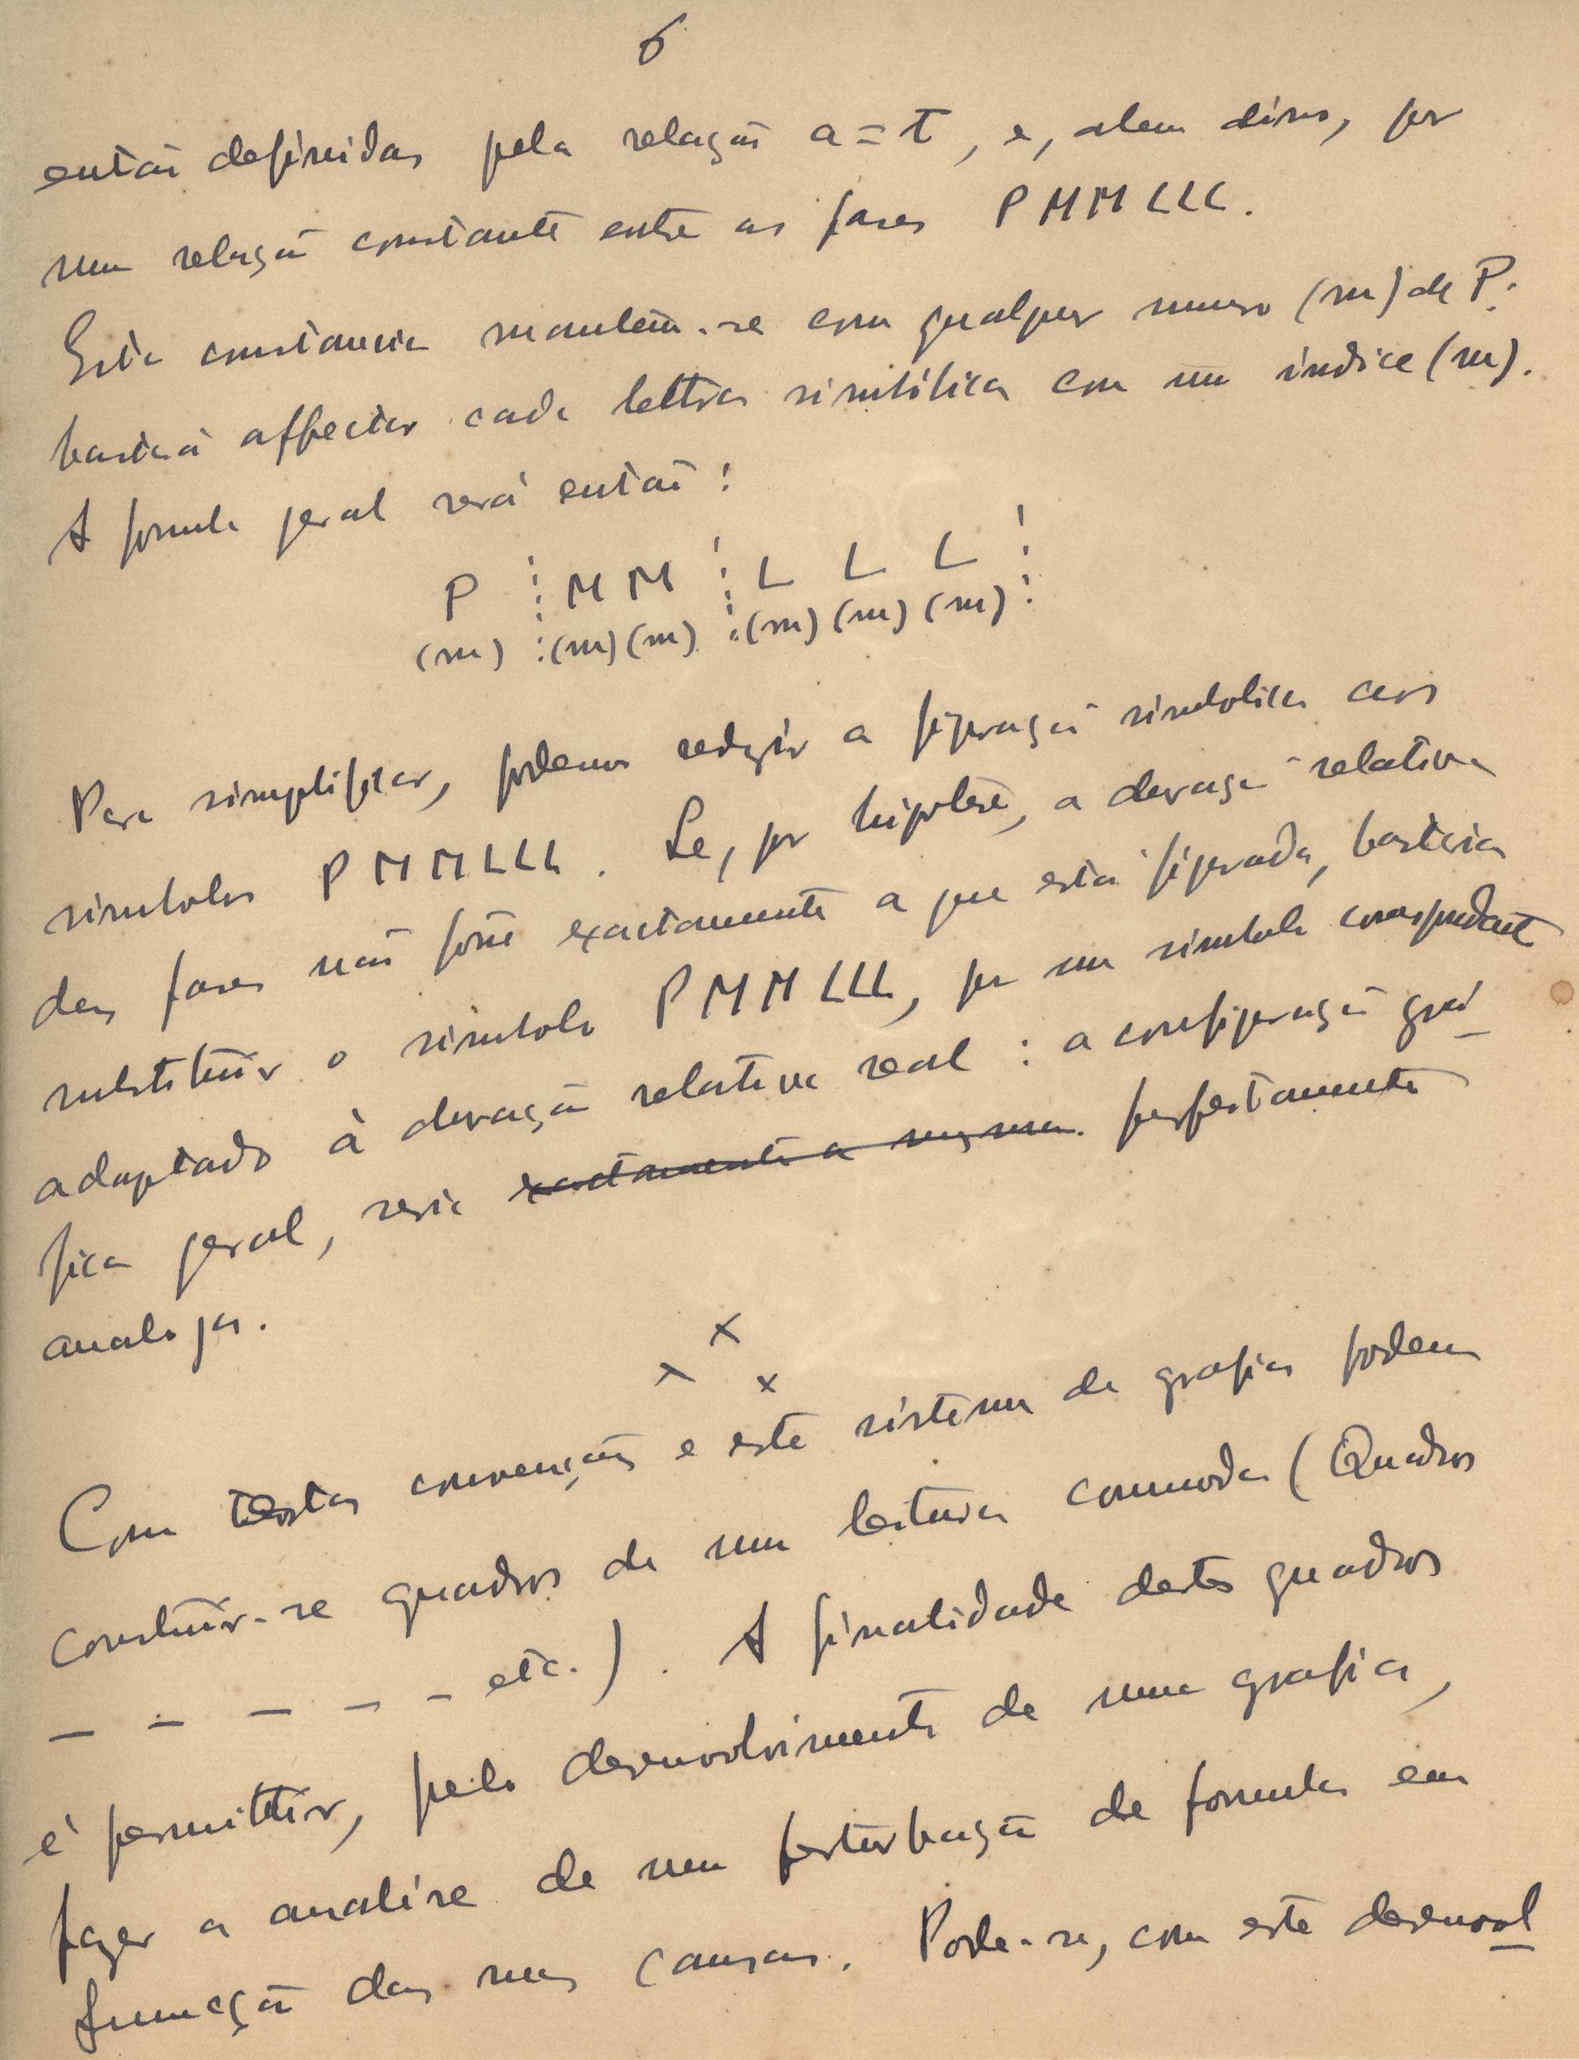 6
então definidas pela relação a = t, e, alem disso, por
uma relação constante entre as fases P M M L L L.
Esta constancia mantem-se com qualquer numero (m) de P.
bastará affectar cada lettra simbólica com um indice (m).
A formula geral será então:
P ⋮ M M ⋮ L L L ⋮
(m) ⋮ (m) (m) ⋮ (m) (m) (m) ⋮
Para simplificar, podemos redigir a figuração simbolica aos
simbolos P M M L L L. Se, por hipotese, a duração relativa
das fases não fosse exactamente a que está figurada, bastaria
substituir o simbolo P M M L L L, por um simbolo correspondente
adaptado à duração relativa real : a configuração grá-
fica geral, seria exactamente a mesma. perfeitamente
analoga.
x x x
Com estas convenções e este sistema de grafias podem
construir-se quadros de uma leitura commoda (Quadros
— — — — — etc.). A finalidade destes quadros
é permittir, pelo desenvolvimento de uma grafica,
fazer a analise de uma perturbação de formula em
funcção das suas causas. Pode-se, com este desenvol